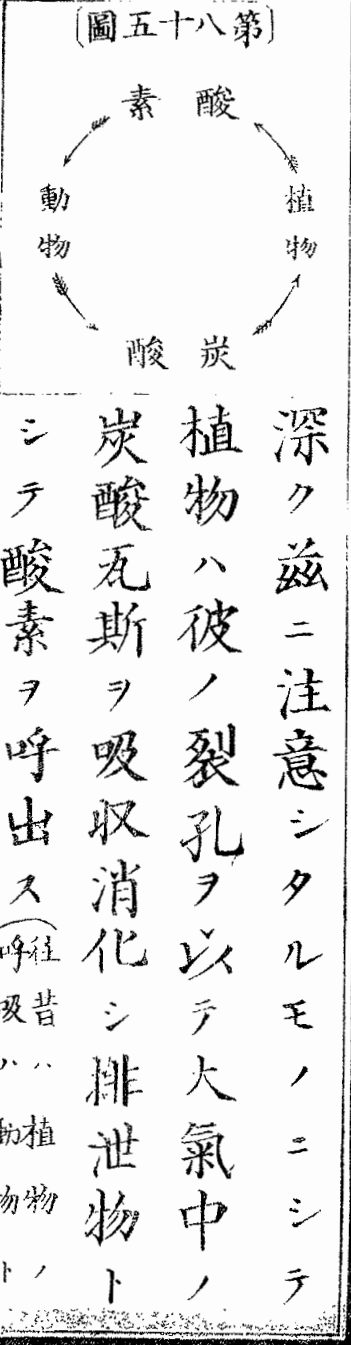 〔第八十五圖〕
酸素
植物
動物
炭酸
深ク茲ニ注意シタルモノニシテ
植物ハ彼ノ裂孔ヲ以テ大氣中ノ
炭酸瓦斯ヲ吸収消化シ排泄物ト
シテ酸素ヲ呼出ス(往昔ハ植物ノ
呼吸ハ動物ト